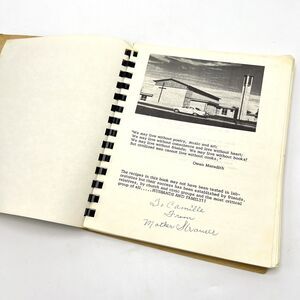 "We may live without poetry, music and art;
We may live without conscience and live without heart;
We may live without friends; We may live without books;
But civilized man cannot live without cooks."
Owen Meredith
The recipes in this book may not have been tested in lab-
oratories but their success has been established by friends,
relatives, by church and civic groups and the most critical
group of all.....HUSBANDS AND FAMILY!!
To Camille
From
Mother